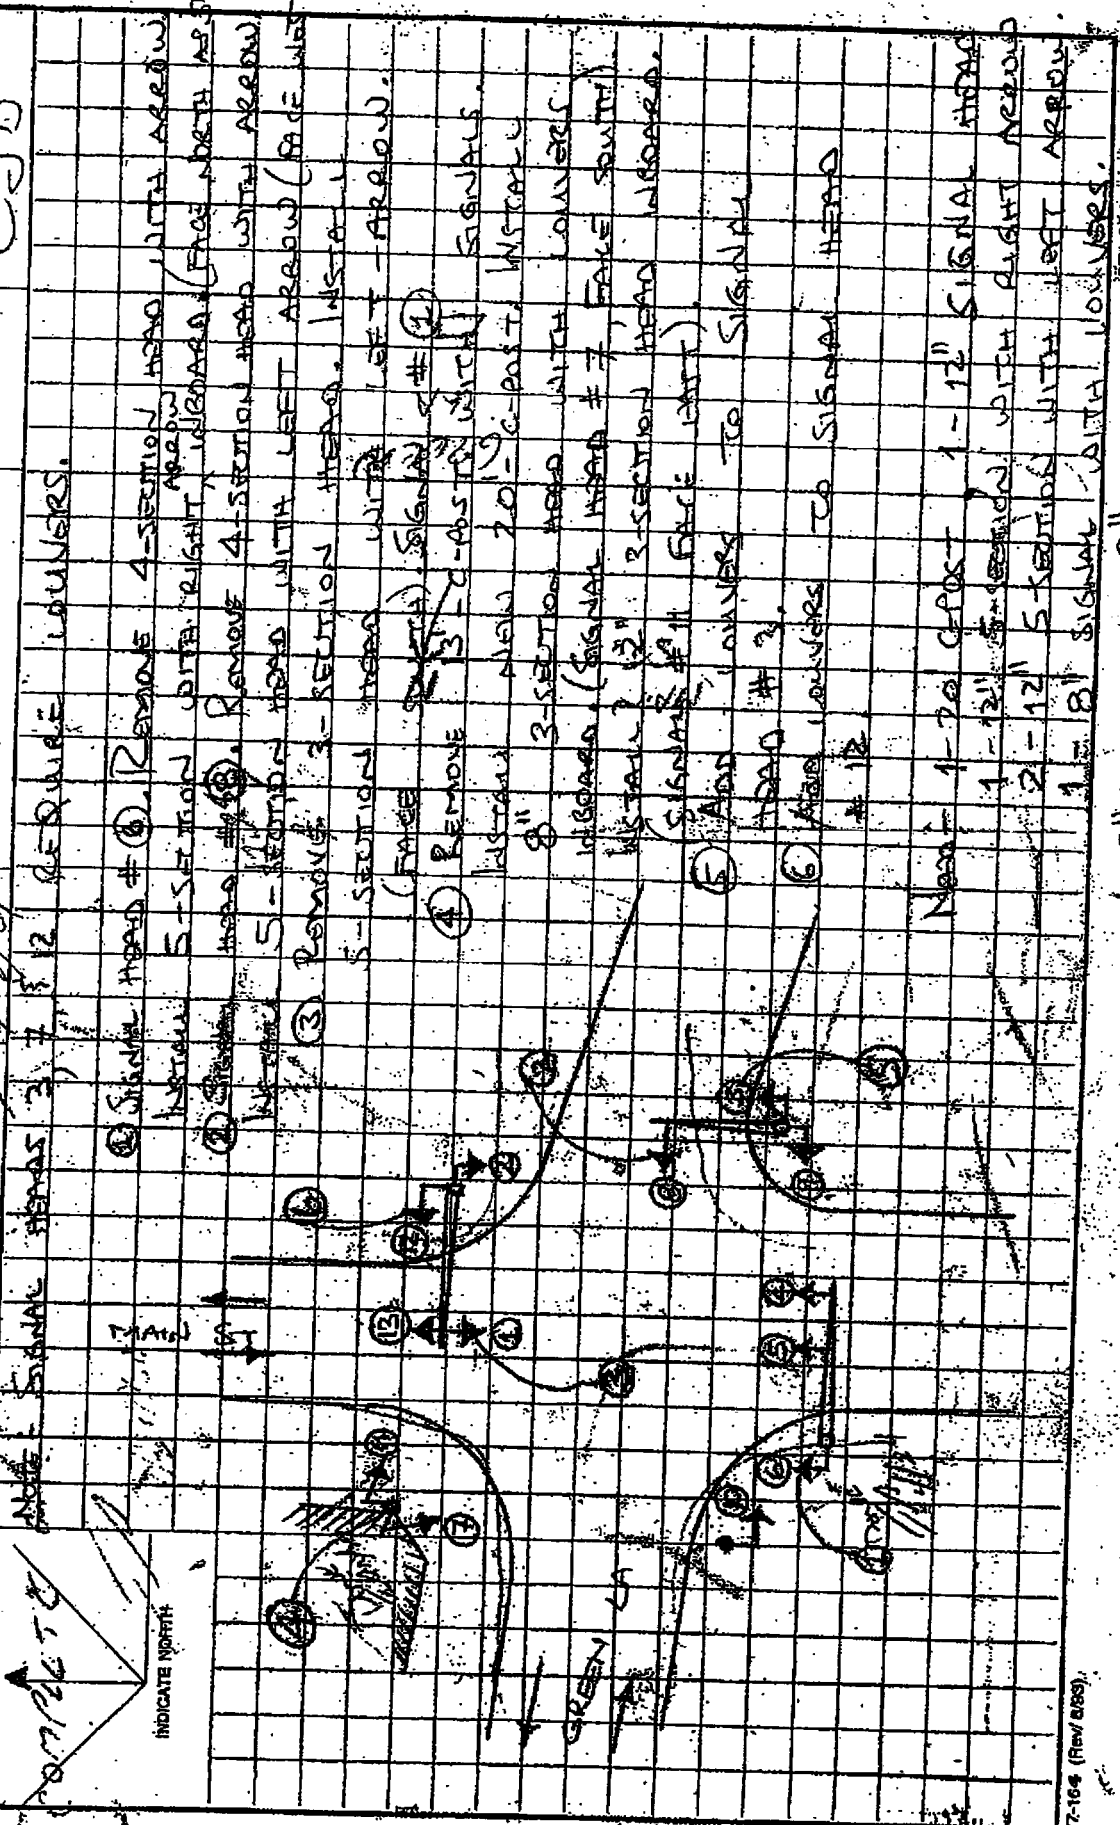 COMPLETE
INDICATE NORTH
NOTE - SIGNAL HEADS 2, 7 & 12 REQUIRE LOUVERS.
① SIGNAL HEAD # ⑥. REMOVE 4-SECTION HEAD WITH ARROW
INSTALL 5-SECTION WITH RIGHT ARROW INBOARD. (FACE NORTH AS
② SIGNAL HEAD # 8. REMOVE 4-SECTION HEAD WITH ARROW
INSTALL 5-SECTION HEAD WITH LEFT ARROW (FACE WEST
③ REMOVE 3-SECTION HEAD. INSTALL
5-SECTION HEAD WITH LEFT-ARROW.
(FACE SOUTH). SIGNAL # ①
④ REMOVE 13'-C-POST WITH SIGNALS.
INSTALL NEW 20'-C-POST. INSTALL
8" 3-SECTION HEAD WITH LOUVERS
INBOARD. (SIGNAL HEAD # 7, FACE SOUTH)
INSTALL 12" 3-SECTION HEAD INBOARD.
(SIGNAL # 11 FACE EAST)
⑤ ADD LOUVERS TO SIGNAL
HEAD # 2.
⑥ ADD LOUVERS TO SIGNAL HEAD
# 12
NEED - 1-20' CPOST 1-12" SIGNAL HEAD
1-12" 5-SECTION WITH RIGHT ARROW
2-12" 5-SECTION WITH LEFT ARROW
1- 8" SIGNAL WITH LOUVERS.
MAIN
ST
GREEN
LA
⑬
①
②
⑫
⑥
③
⑦
④
⑪
⑧
②
⑨
⑤
④
⑤
⑥
①
7-164 (Rev/ 8/83)